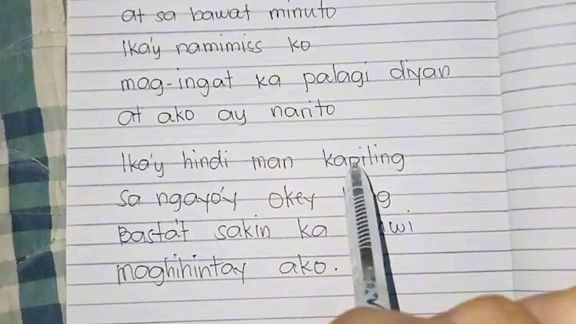 at sa bawat minuto
Ika'y namimiss ko
mag-ingat ka palagi diyan
at ako ay narito
Ika'y hindi man kapiling
sa ngayo'y okey
Basta't sakin ka
maghihintay ako.